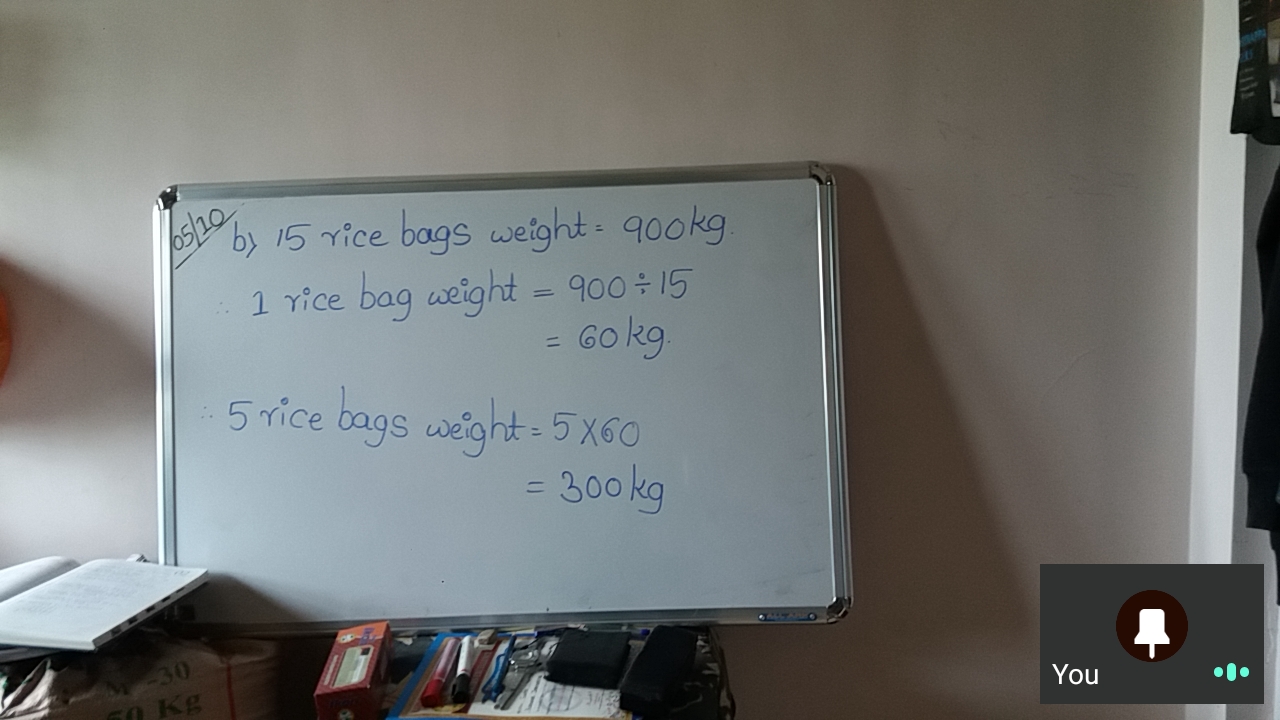 05/10
b) 15 rice bags weight = 900kg.
∴ 1 rice bag weight = 900÷15
= 60kg.
∴ 5 rice bags weight = 5×60
= 300kg
50 Kg
You